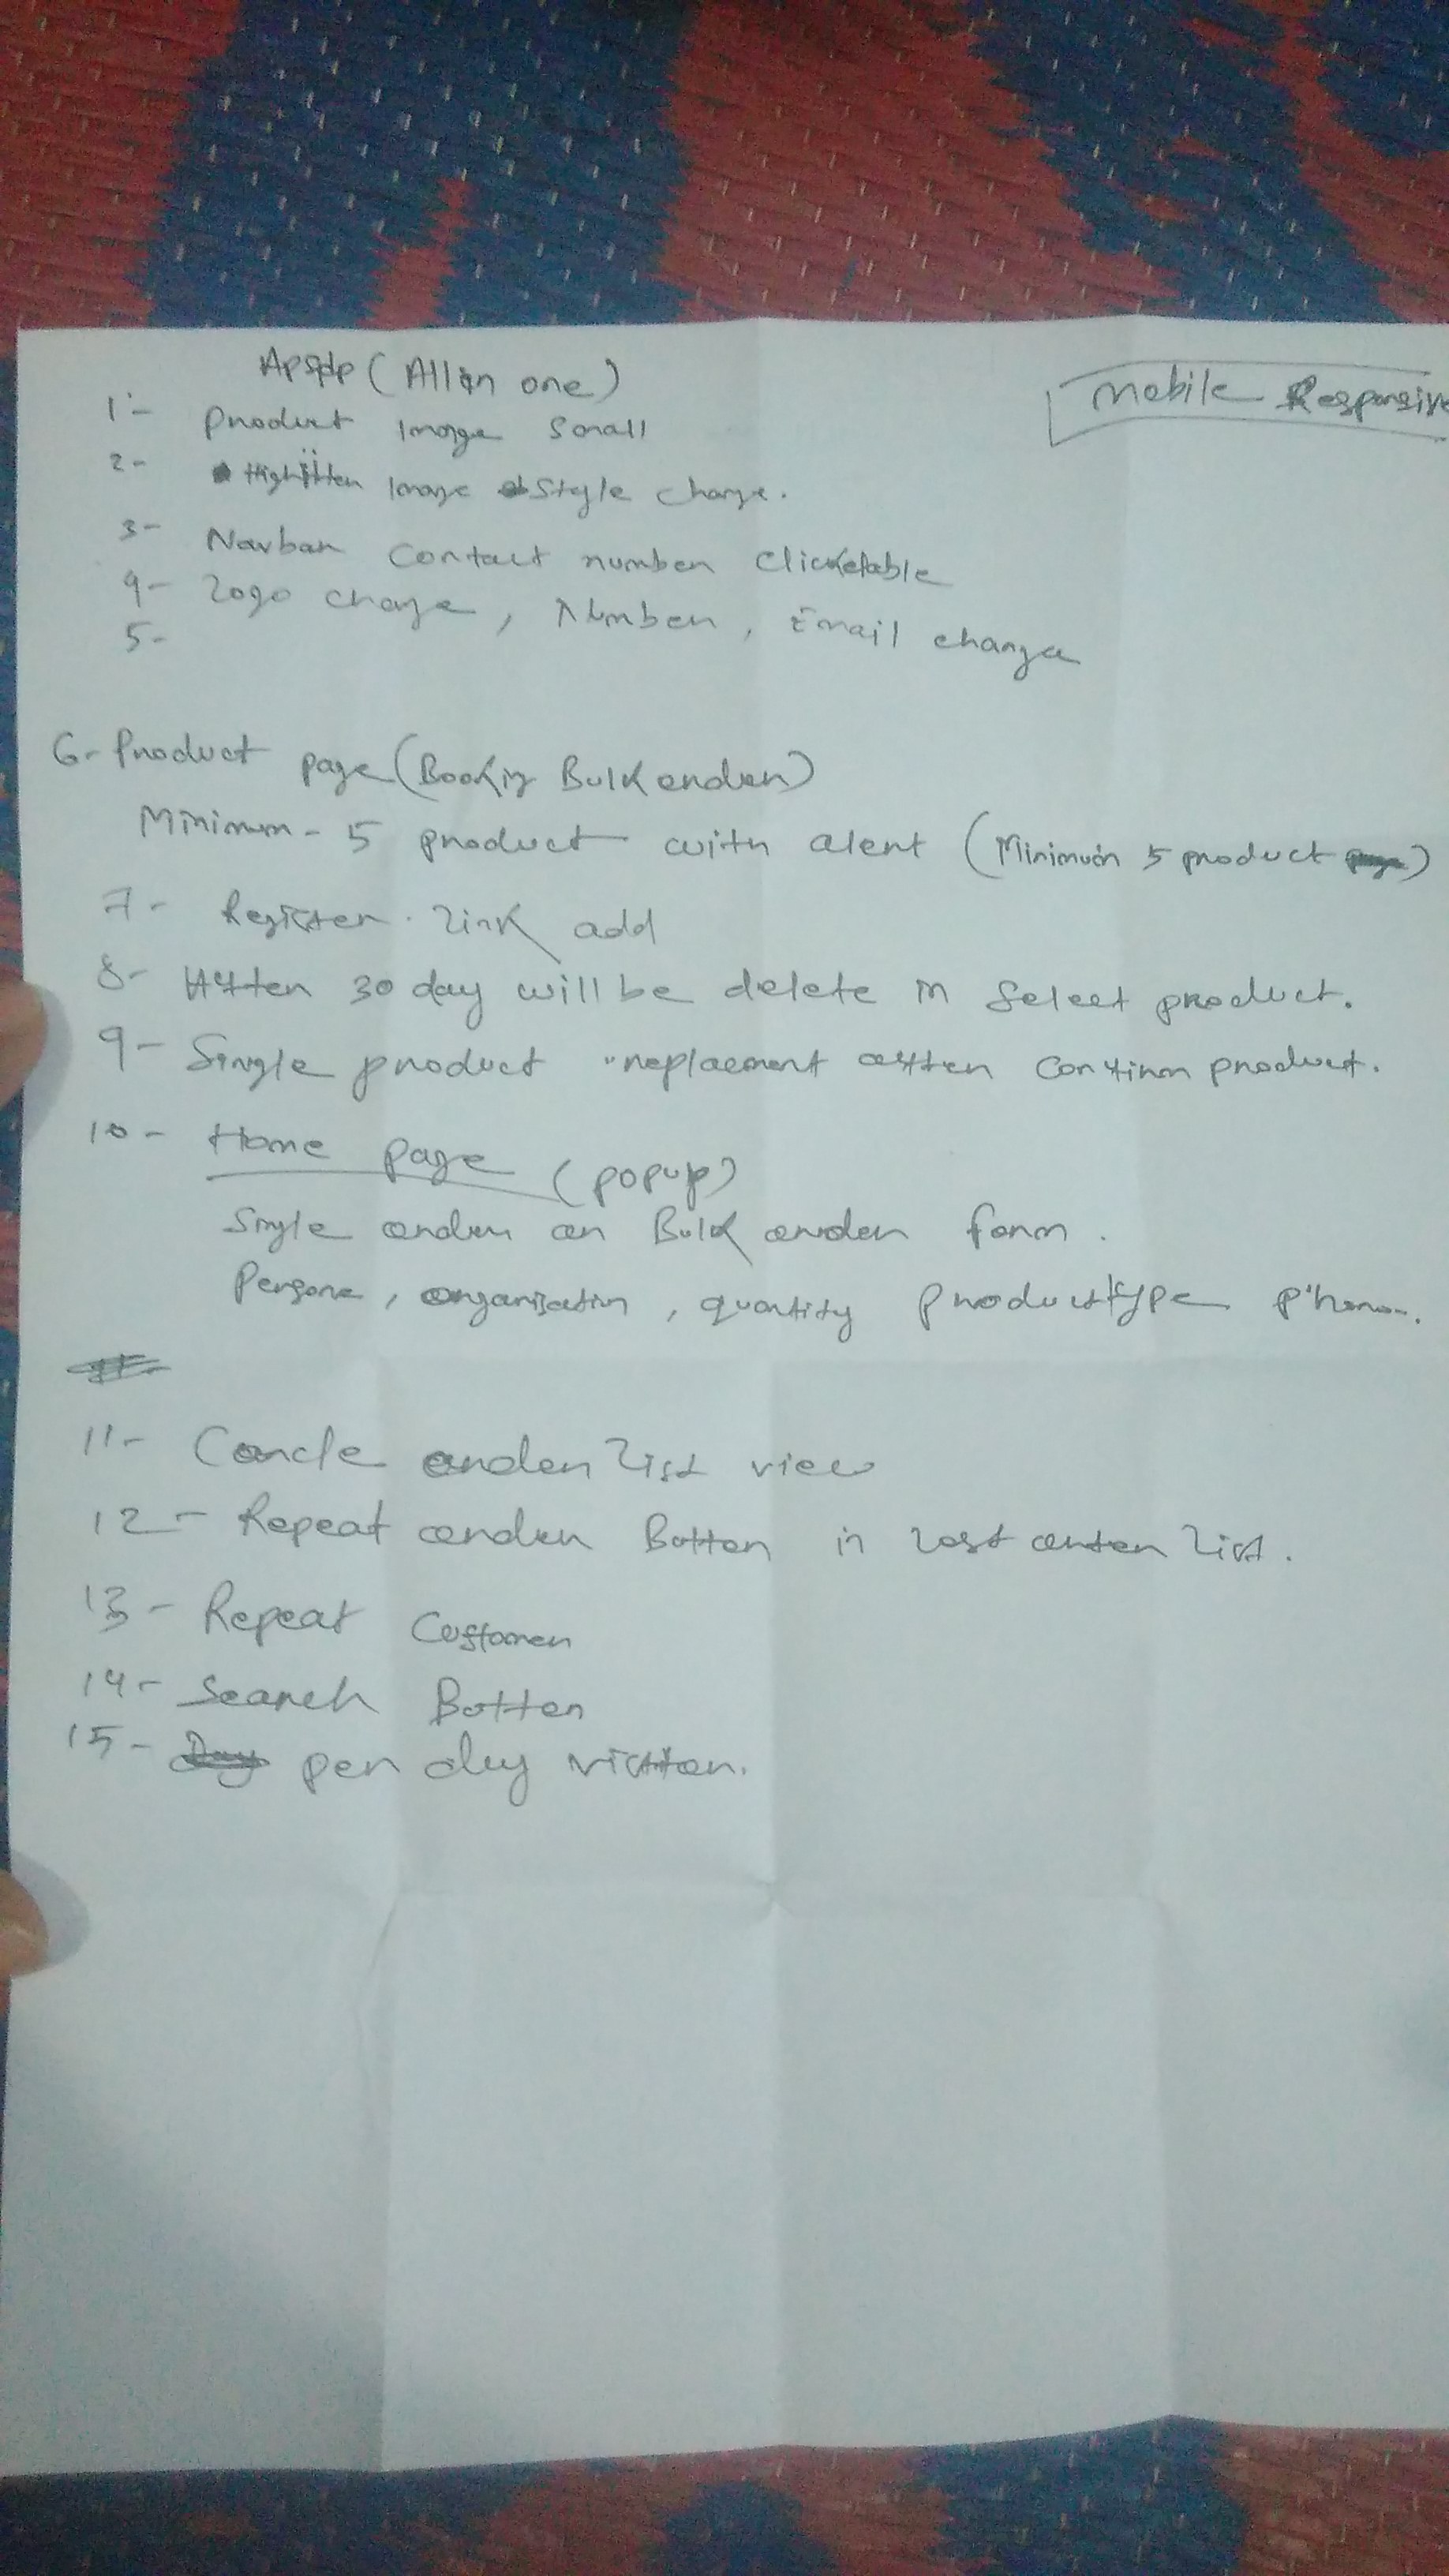 (All in one)
Mobile Responsive
1- Product Image Small
2- Image Style change.
3- Navbar Contact number Clickelable
4- Logo change, Number, Email change
5-
6- Product page (Booking Bulk order)
Minimum - 5 product with alert (Minimum 5 product)
7- Register link add
8- After 30 day will be delete in Select product.
9- Single product replacement after product.
10- Home page (popup)
Single order or Bulk order form.
Persone, organization, quantity product type phone.
11- Cancle order list view
12- Repeat order Botton in last order list.
13- Repeat Customer
14- Search Botton
15- per day visitor.